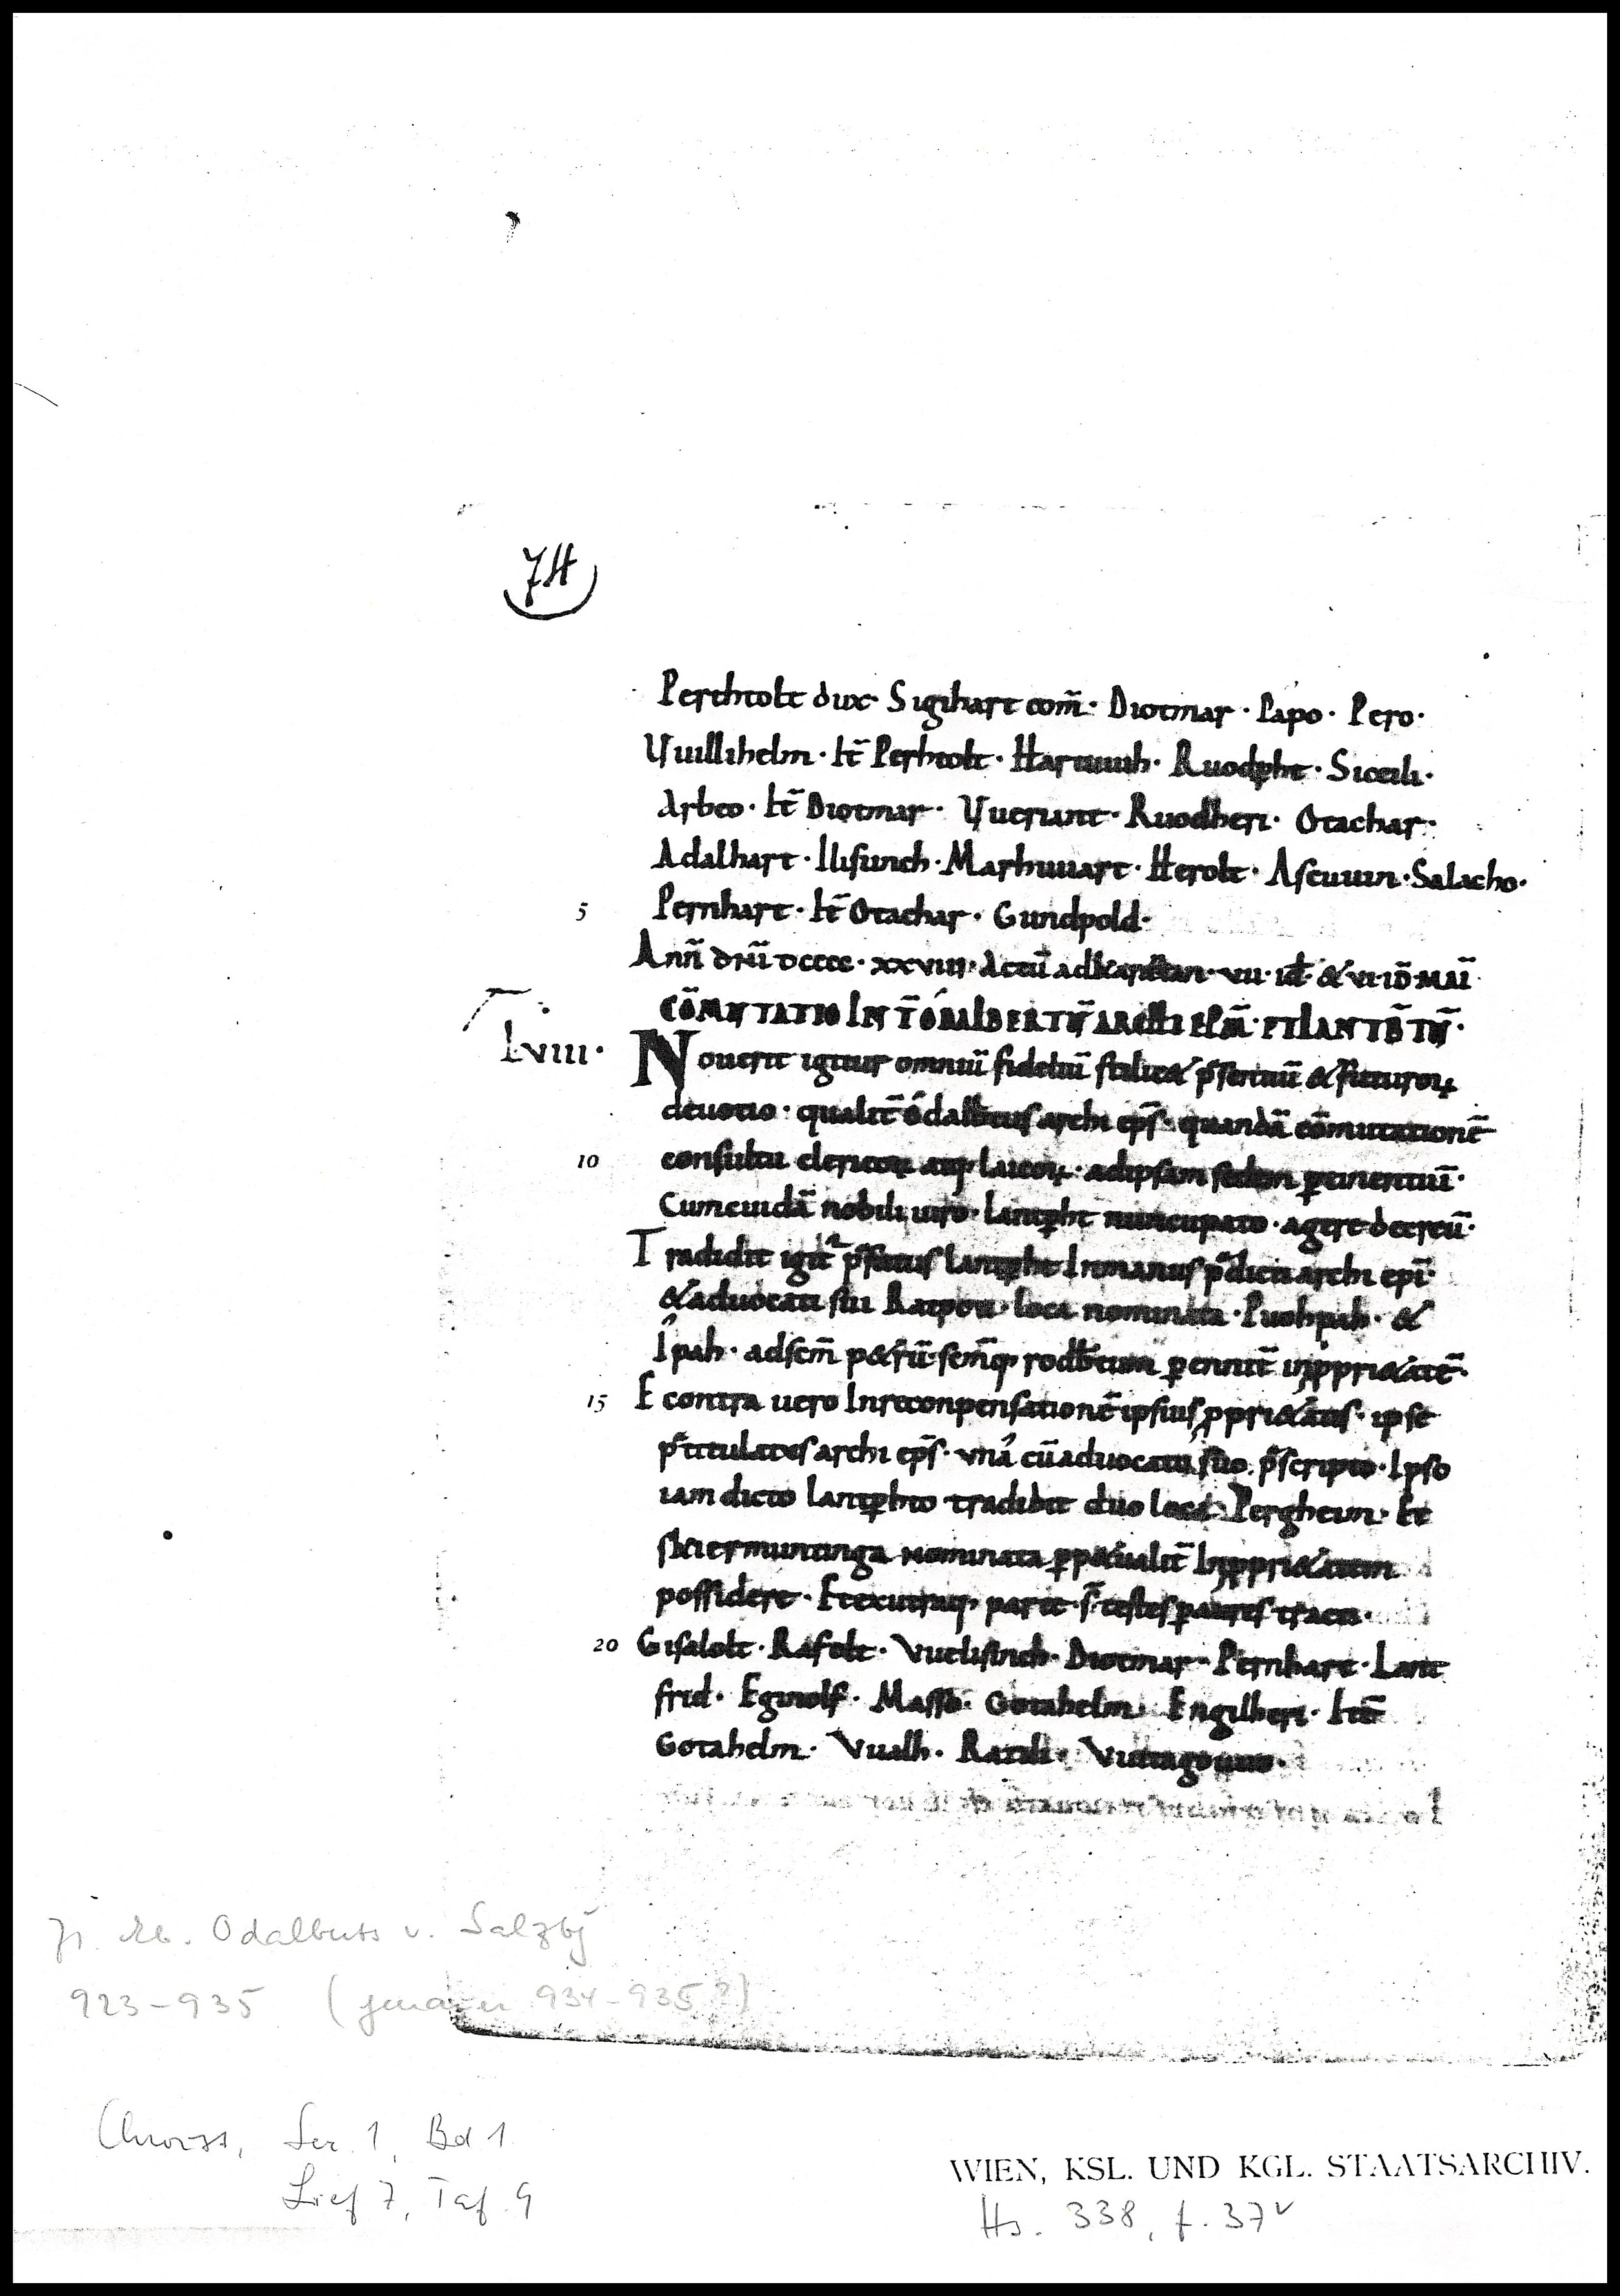 74
Perehtolt dux· Sigihart com̄· Diotmar · Papo · Pero·
Vuillihelm · It̄ Perhtolt · Hartuuih· Ruodp̱ht · Siceili·
Arbeo · It̄ Diotmar · Vueriant · Ruodheri · Otachar·
Adalhart · Ilisunch · Marhuuart · Herolt · Ascuuin · Salacho·
5 Pernhart · It̄ Otachar · Gundpold·
Ann̄ dn̄i dcccc · xxviii · Actū ad · vii · id̄ · & vi · id̄ · mai
CŌMVTATIO INT̄ ŌDALBERTV̄ ARCHI EP̄M · ET LANTB̄TV̄ ·
Lviii · Nouerit igitur omniū fideliū scilic& p̄sentiū & futuroꝝ
deuotio · qualit̄ ódalb̄tus archi ep̄s · quandā cōmutationē
10 consultu clericoꝝ atq; laicoꝝ · ad ipsam sedem ꝑtinentiū·
Cum cuidā nobili uiro · lantꝑht nuncupato · agere decreū·
Tradidit igit̄ p̄fatus lantꝑht In manus p̄dicti archi ep̄i·
& aduocati sui Ratpoti · loca nominata · Puohpah · &
Ípah · ad sem̄ p&rū · sem̄q; rodb̄tum ꝑennit̄ in ꝓpri&atē·
15 E contra uero In reconpensationē ipsius ꝓpri&atis · ipse
p̄titulatus archi ep̄s · vná cū aduocato suo p̄scripto · Ipso
iam dicto lantꝑhto tradidit duo loca Pergheim · Et
nominata ꝑp&ualit̄ In ꝓpri&atem
possidere · Et ex utraq; parte · s̄ testes ꝑ aures tracti·
20 Gisalolt · Rafolt · Vuelisinch · Diotmar · Pernhart · Lant
frid · Eginolf · Masso · Gotahelm · Engilberi · Itē
Gotahelm · Vualh · Ratili · Vuitagouuo·
Odalberts v. Salzbg
923-935 (genauer 934-935?)
Chroust, Ser. 1, Bd 1
Lief 7, Taf. 9
WIEN, KSL. UND KGL. STAATSARCHIV.
Hs. 338, f. 37v